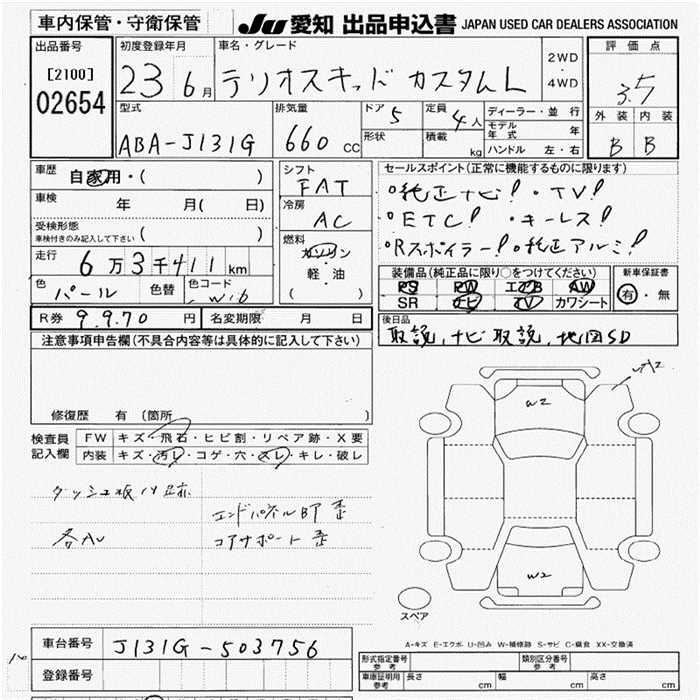 車内保管・守衛保管 JU 愛知 出品申込書 JAPAN USED CAR DEALERS ASSOCIATION
出品番号 初度登録年月 車名・グレード 2WD ・ 4WD 評価点
[2100] 02654 23 6月 テリオスキッド カスタムL 3.5
型式 排気量 ドア 5 定員 4人 ディーラー・並行 外装 内装
ABA-J131G 660 CC 形状 積載 kg モデル年式 年 B B
ハンドル 左・右
車歴 自家用・( ) シフト FAT セールスポイント(正常に機能するものに限ります)
車検 年 月( 日) 冷房 AC ・純正ナビ! ・TV!
受検形態 車検付きのみ記入して下さい ( ) 燃料 ガソリン ・ETC! ・キーレス!
走行 6万3千411km 軽・油 ( ) ・Rスポイラー! ・純正アルミ!
色 パール 色替 色コード W16 装備品(純正品に限り○をつけてください) 新車保証書
PS PW エアB AW 有・無
SR ナビ TV カワシート
R券 9,970円 名変期限 月 日 後日品
取説、ナビ取説、地図SD
注意事項申告欄(不具合内容等は具体的に記入して下さい)
修復歴 有(箇所
検査員記入欄 FW キズ・飛石・ヒビ割・リペア跡・X要
内装 キズ・汚レ・コゲ・穴・スレ・キレ・破レ
W2
ダッシュ板ハメ跡
エンドパネルBP歪
各AU コアサポート歪
W2
スペア
A-キズ E-エクボ U-凹み W-補修跡 S-サビ C-腐食 XX-交換済
車台番号 J131G-503756
登録番号
形式指定番号 参考 類別区分番号 参考
車庫証明用 参考 長さ cm 幅 cm 高さ cm